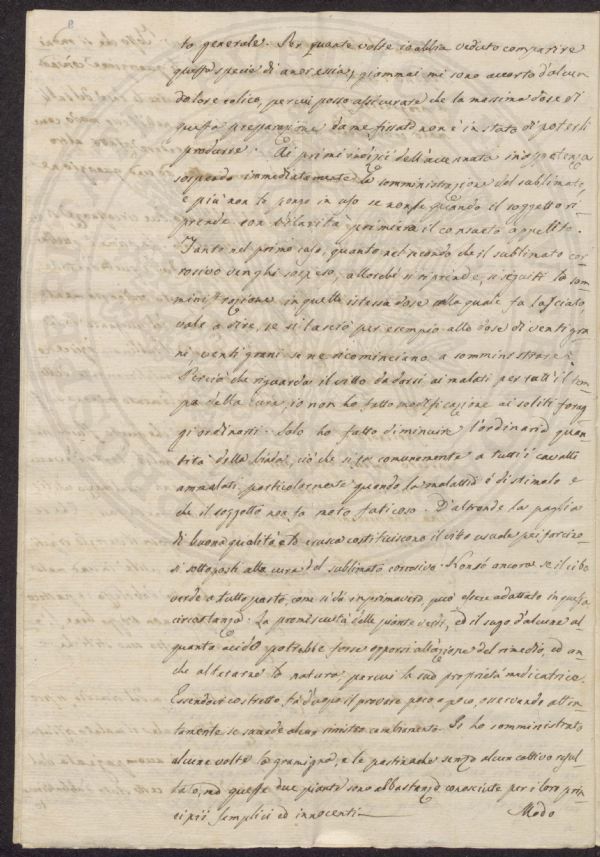 8
to generale. Per quante volte io abbia veduto comparire
questa specie di anoressia, giammai mi sono accorto d'alcun
dolore colico, per cui posso assicurare che la massima dose di
questa preparazione da me fissata non è in stato di poterli
produrre. Ai primi indizii dell'accennata inappetenza
sospendo immediatamente la somministrazione del sublimato,
e più non lo pongo in uso se non se quando il soggetto ri-
prende con ilarità primiera il consueto appetito.
Tanto nel primo caso, quanto nel secondo che il sublimato cor-
rosivo venghi sospeso, allorché si riprende, si seguiti la som-
ministrazione in quella istessa dose colla quale fu lasciato,
vale a dire, se si lasciò per esempio alla dose di venti gra-
ni venti grani se ne ricominciano a somministrare.
Perciò che riguarda il vitto da darsi ai malati per tutt'il tem-
po della cura, io non ho fatto modificazione ai soliti forag-
gi ordinarii. Solo ho fatto diminuire l'ordinaria quan-
tità della biada, ciò che si fa comunemente a tutti i cavalli
ammalati, particolarmente quando la malattia è di stimolo e
che il soggetto non fa moto faticoso. D'altronde la paglia
di buona qualità e la crusca costituiscono il cibo usuale pei farcino-
si sottoposti alla cura del sublimato corrosivo. Non so ancora se il cibo
verde a tutto pasto, come si dà in primavera, può essere adattato in questa
circostanza. La promiscuità delle piante verdi, ed il sugo d'alcune al-
quanto acido potrebbe forse opporsi all'azione del rimedio, ed an-
che alterarne la natura per cui la sua proprietà medicatrice.
Essendovi costretto, fa d'uopo il provare poco a poco, osservando atten-
tamente se succede alcun sinistro cambiamento. Io ho somministrato
alcune volte la gramigna, e le pastinache senza alcun cattivo resul-
tato, ma queste due piante sono abbastanza conosciute per i loro prin-
cipii semplici ed innocenti.
Modo